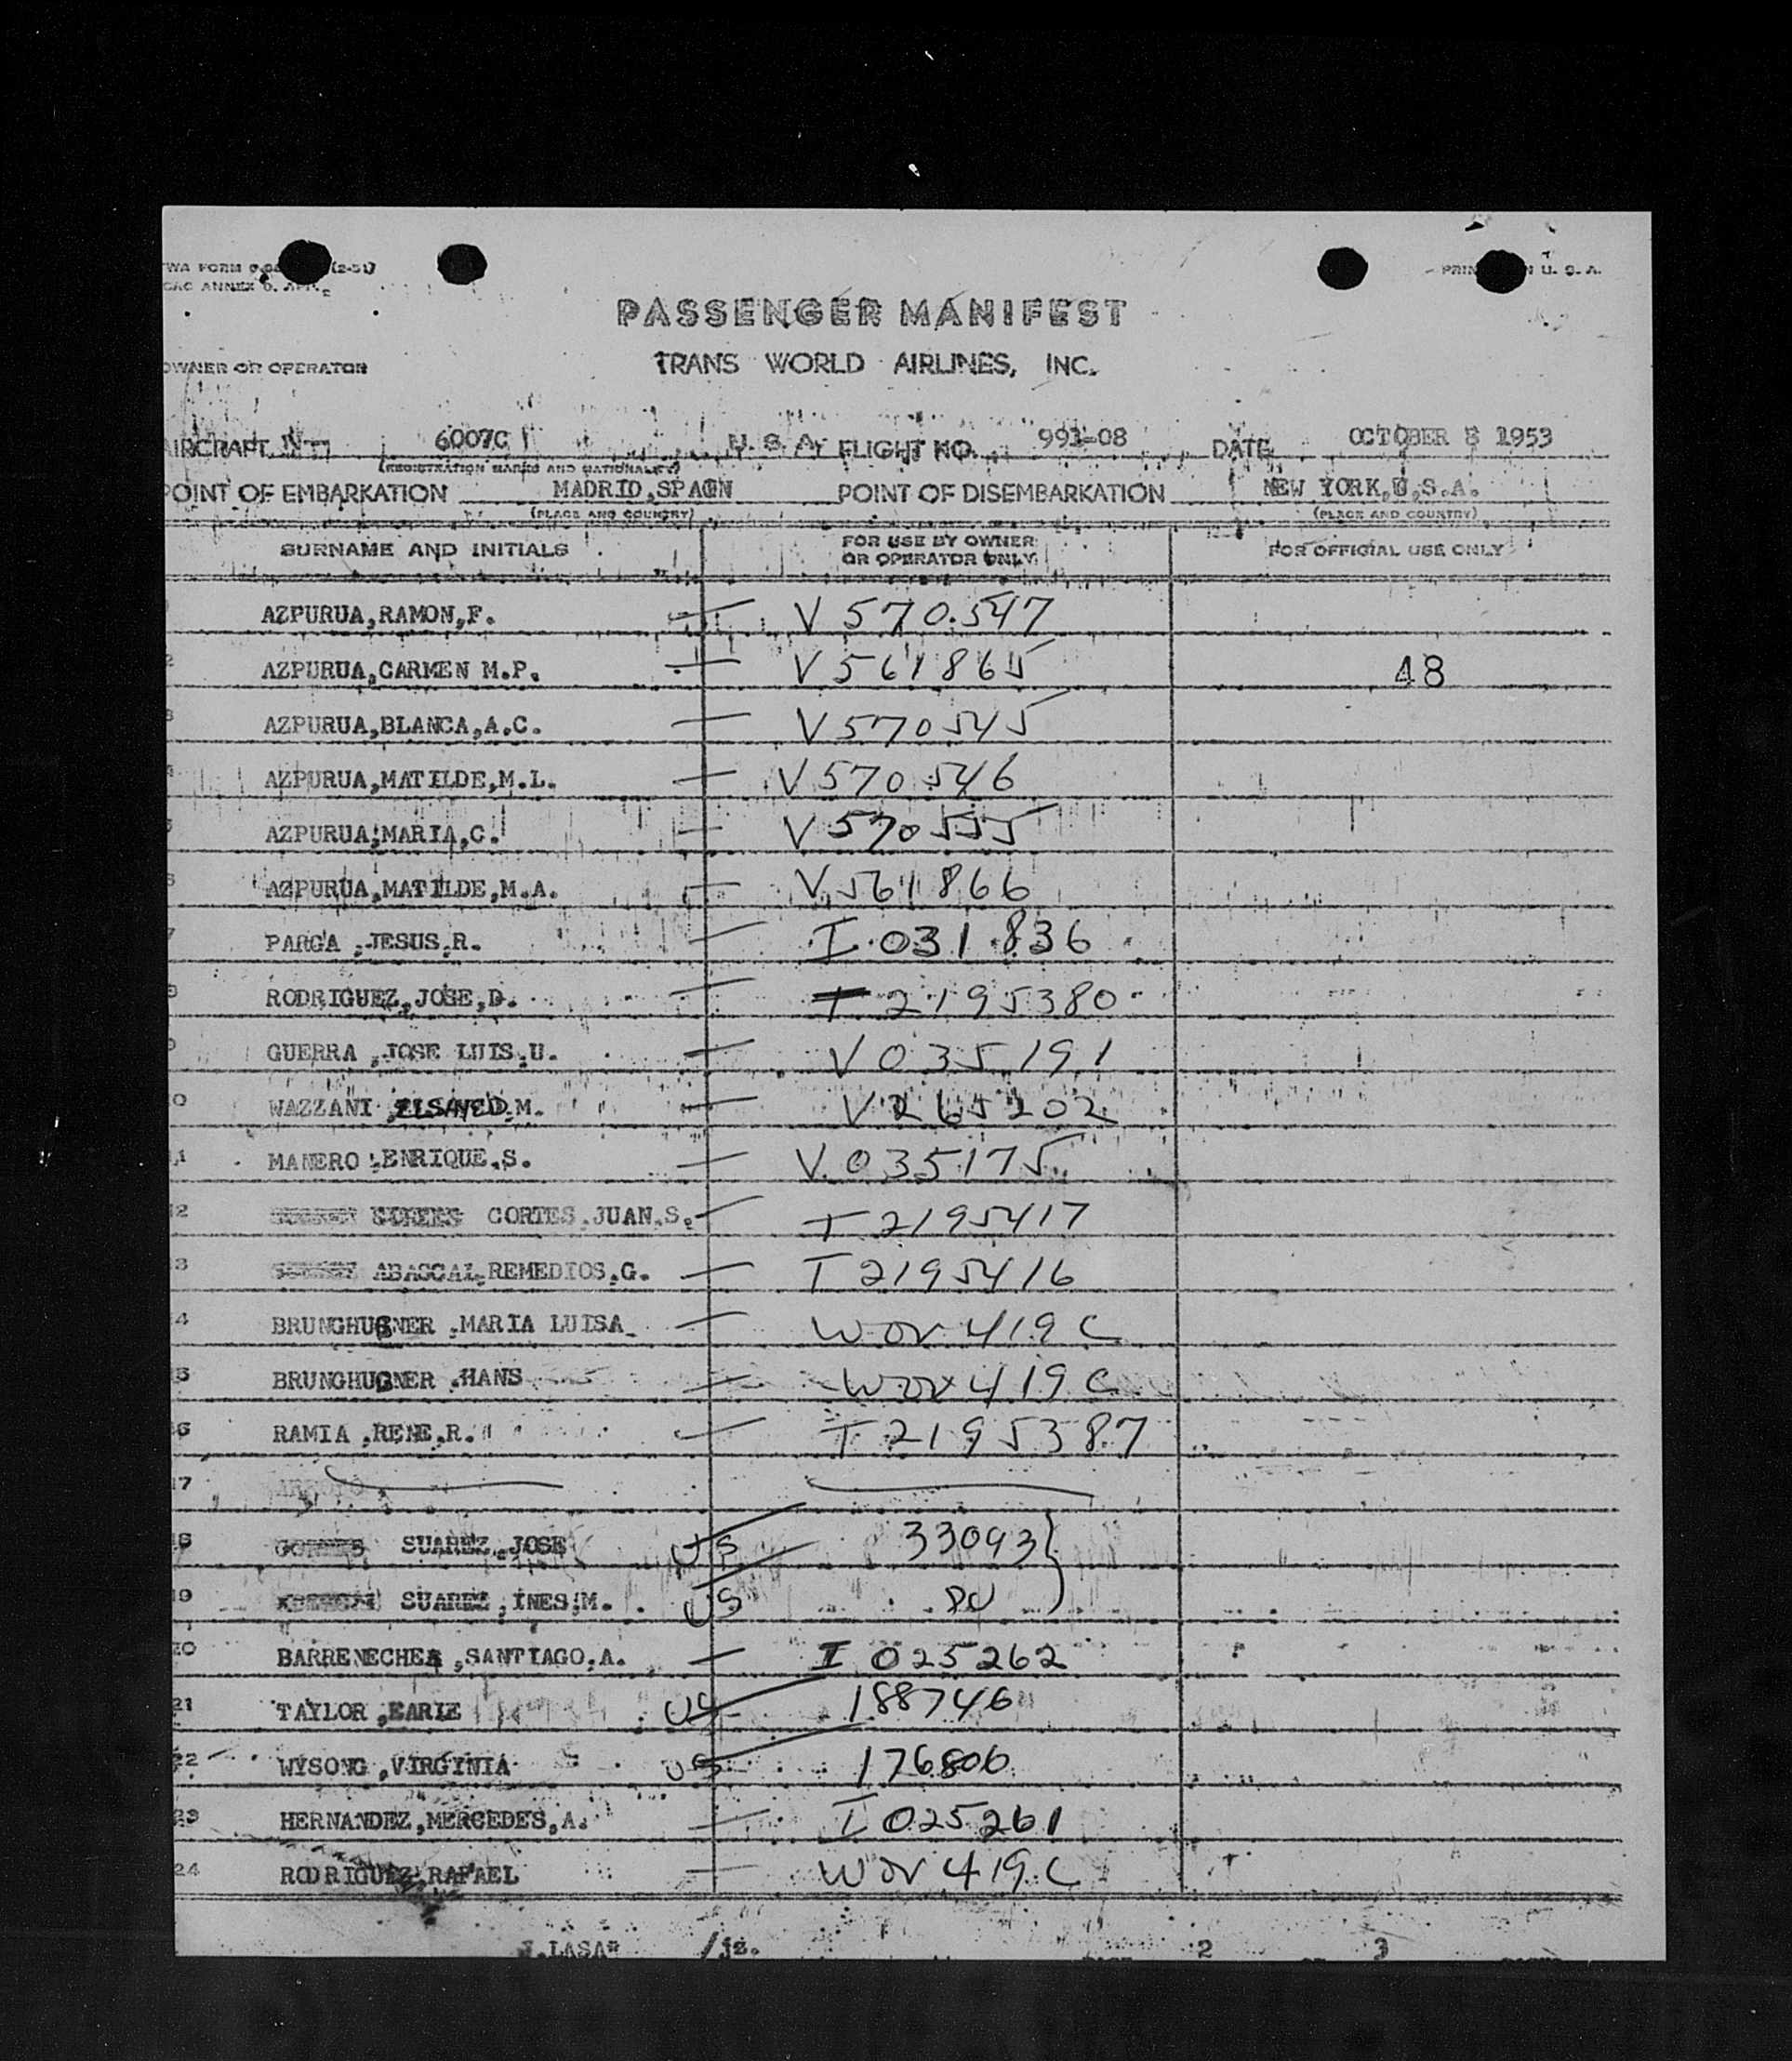 TWA FORM (2-51)
PRINTED IN U. S. A.
PASSENGER MANIFEST
OWNER OR OPERATOR TRANS WORLD AIRLINES, INC.
AIRCRAFT 6007C U. S. A. FLIGHT NO. 991-08 DATE OCTOBER 8 1953
(REGISTRATION MARKS AND NATIONALITY)
POINT OF EMBARKATION MADRID,SPAIN POINT OF DISEMBARKATION NEW YORK,U.S.A.
(PLACE AND COUNTRY) (PLACE AND COUNTRY)
SURNAME AND INITIALS FOR USE BY OWNER OR OPERATOR ONLY FOR OFFICIAL USE ONLY
AZPURUA,RAMON,F. V 570.547
2 AZPURUA,CARMEN M.P. V 561865 48
3 AZPURUA,BLANCA,A.C. V 570545
4 AZPURUA,MATILDE,M.L. V 570546
5 AZPURUA,MARIA,C. V 570555
6 AZPURUA,MATILDE,M.A. V 561866
7 PARGA ,JESUS,R. I 031 836
8 RODRIGUEZ,JOSE,D. T 2195380
9 GUERRA ,JOSE LUIS,U. V 035191
10 WAZZANI ,ELSAYED,M. V 265202
11 MANERO ,ENRIQUE,S. V 035175
12 CORTES,JUAN,S. T 2195417
13 ABASCAL,REMEDIOS,G. T 2195416
14 BRUNGHUGNER ,MARIA LUISA WOV 419 C
15 BRUNGHUGNER ,HANS WOV 419 C
16 RAMIA ,RENE,R. T 2195387
17
18 SUAREZ,JOSE US 33093
19 SUAREZ,INES,M. US
20 BARRENECHEA,SANTIAGO,A. I 025262
21 TAYLOR ,EARLE US 188746
22 WYSONG ,VIRGINIA US 176806
23 HERNANDEZ,MERCEDES,A. I 025261
24 RODRIGUEZ,RAFAEL WOV 419 C
/jz. 2 3